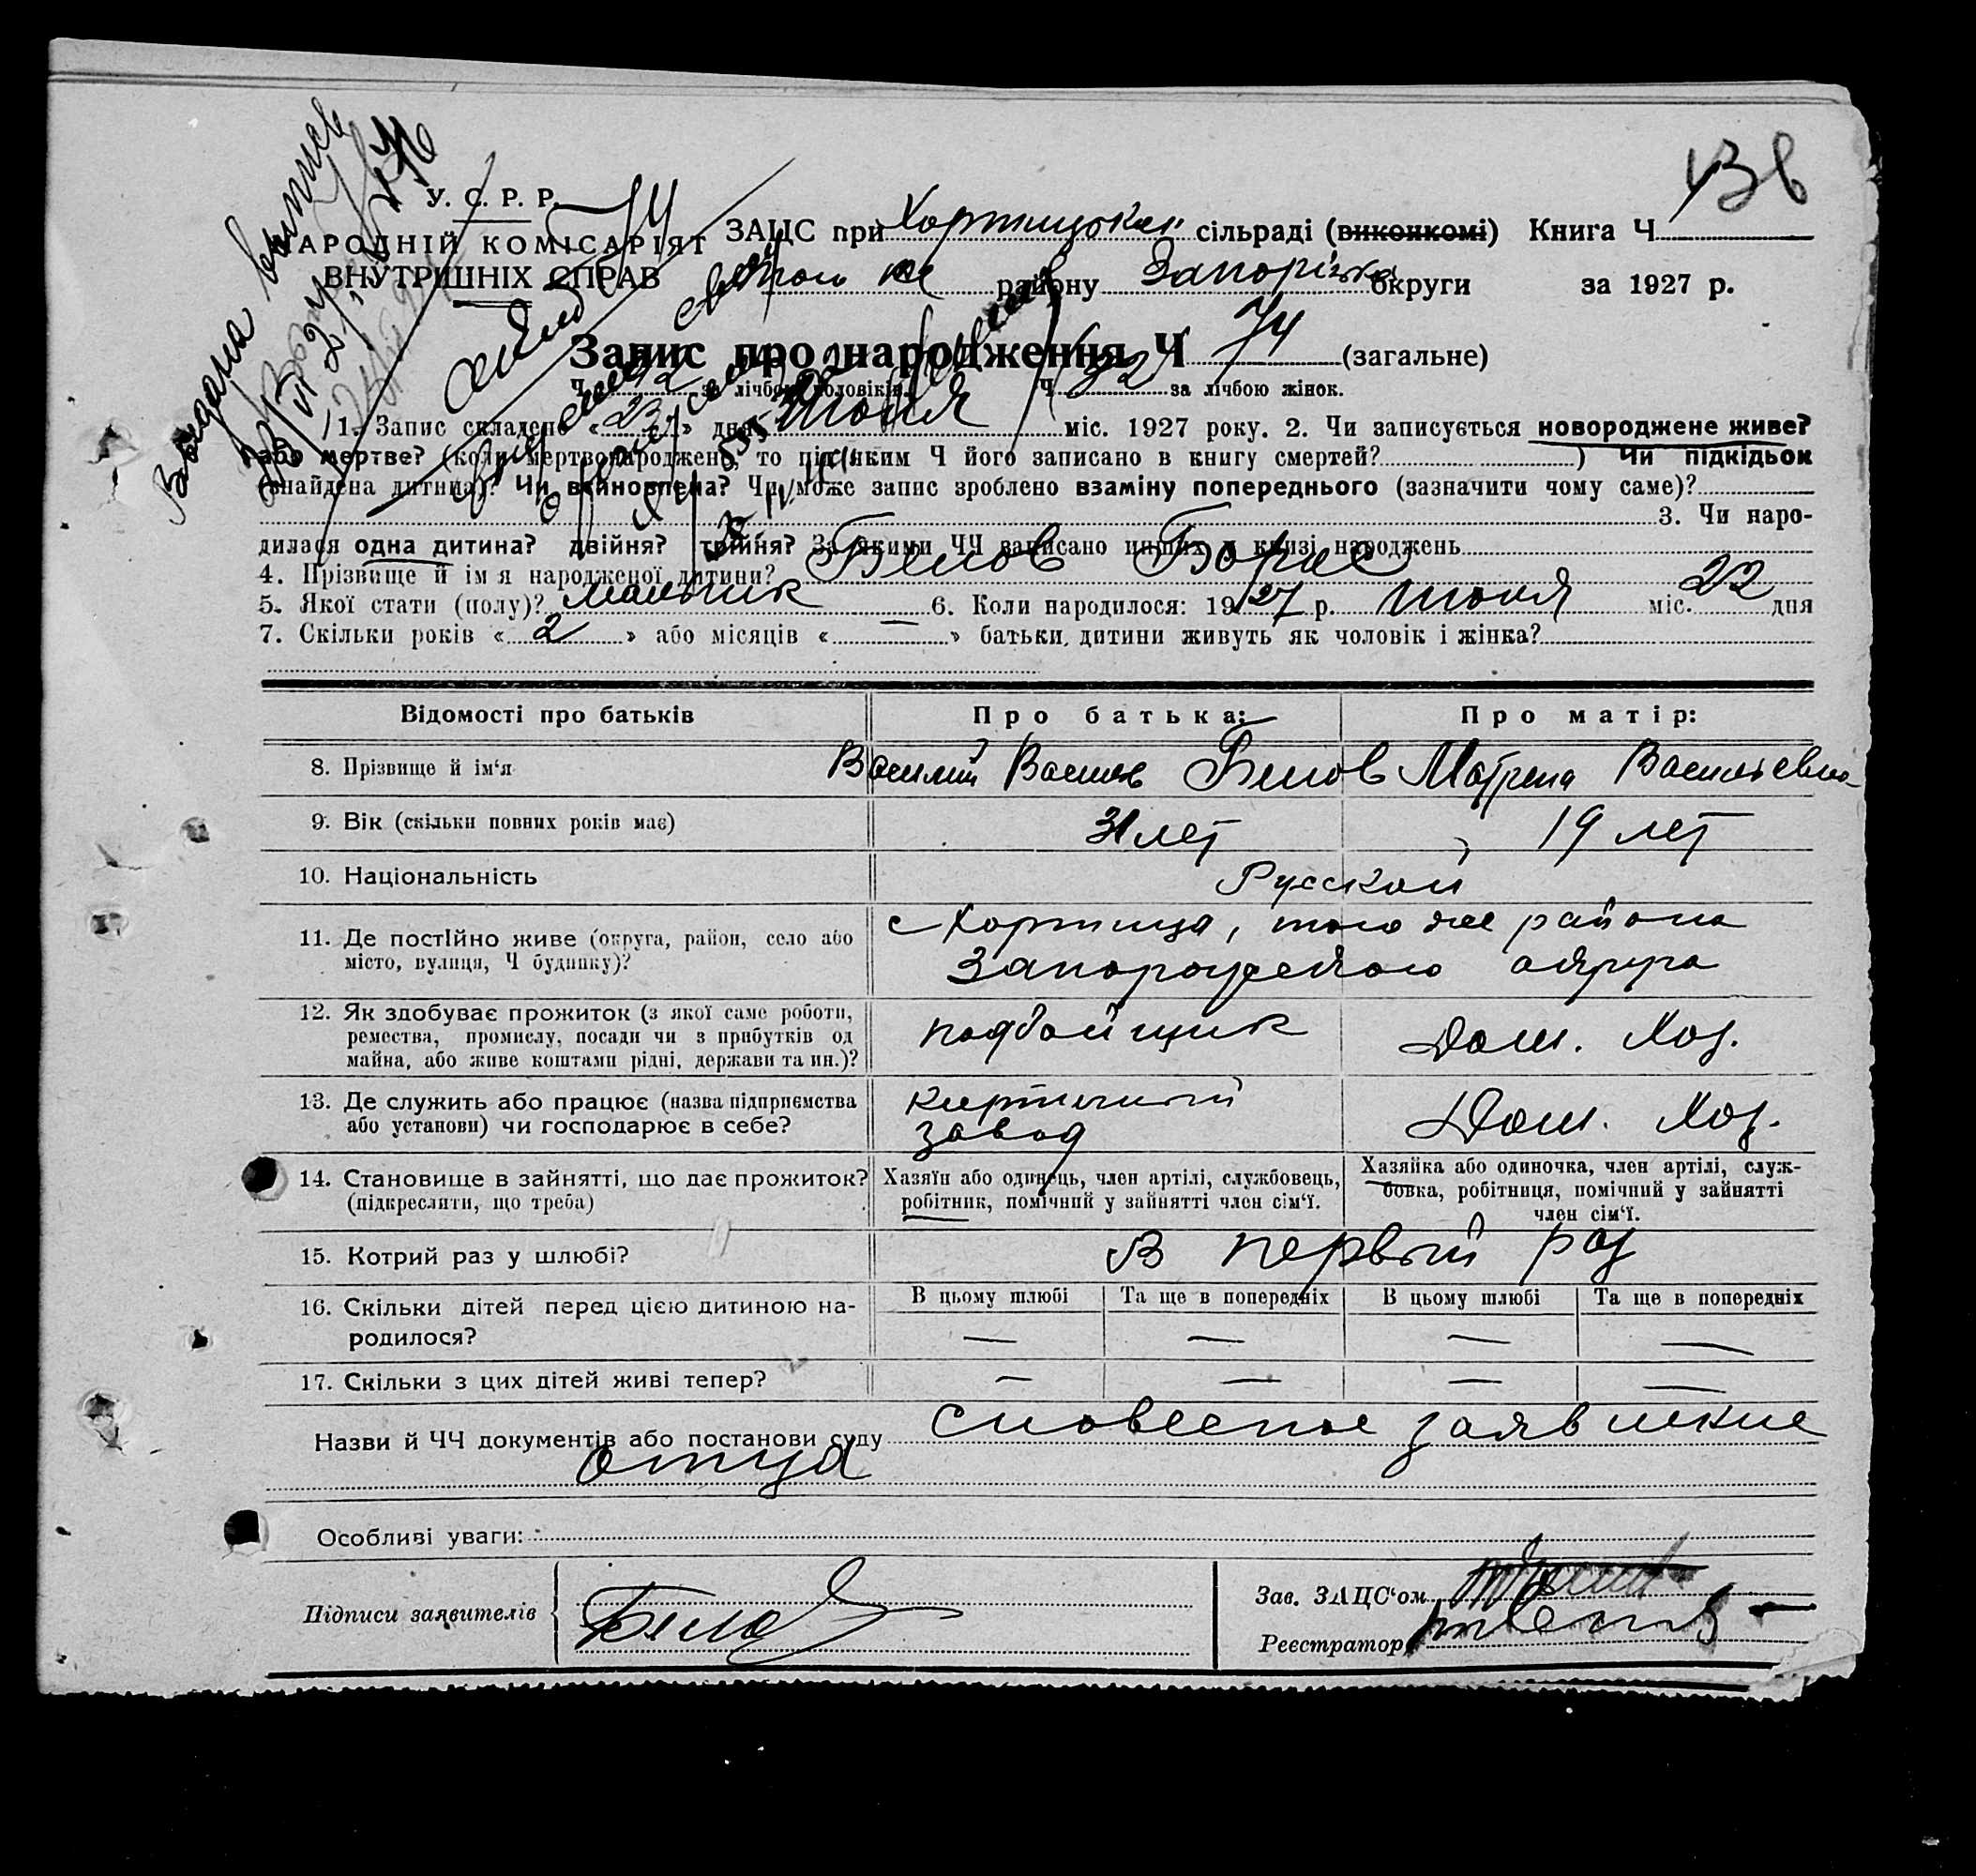 Видана виписка
138
У. С. Р. Р.
НАРОДНІЙ КОМІСАРІЯТ
ВНУТРІШНІХ СПРАВ
74
ЗАЦС при Хортицькій сільраді (виконкомі) Книга Ч
того же району Запорізька округи за 1927 р.
Запис про народження Ч 74 (загальне)
Ч за лічбою чоловіків. Ч 32 за лічбою жінок.
1. Запис складено «23» дня июня міс. 1927 року. 2. Чи записується новороджене живе?
або мертве? (коли мертвонароджене, то під яким Ч його записано в книгу смертей? ) Чи підкідьок
(знайдена дитина)? Чи всиновлена? Чи може запис зроблено взаміну попереднього (зазначити чому саме)?
3. Чи наро-
дилася одна дитина? двійня? трійня? За якими ЧЧ записано инших у книзі народжень
4. Прізвище й ім'я народженої дитини? Белов Борис
5. Якої стати (полу)? мальчик 6. Коли народилося: 1927 р. июня міс. 22 дня
7. Скільки років «2» або місяців «—» батьки дитини живуть як чоловік і жінка?
Відомості про батьків Про батька: Про матір:
8. Прізвище й ім‘я Василий Васильев Белов Матрена Васильевна
9. Вік (скільки повних років має) 31 лет 19 лет
10. Національність Русской
11. Де постійно живе (округа, район, село або
місто, вулиця, Ч будинку)?
с Хортица, того же района
Запорожского округа
12. Як здобуває прожиток (з якої саме роботи,
ремества, промислу, посади чи з прибутків од
майна, або живе коштами рідні, держави та ин.)?
подбойщик Дом. Хоз.
13. Де служить або працює (назва підприємства
або установи) чи господарює в себе?
кирпичный
завод
Дом. Хоз.
14. Становище в зайнятті, що дає прожиток?
(підкреслити, що треба)
Хазяїн або одинець, член артілі, службовець,
робітник, помічний у зайнятті член сім‘ї.
Хазяйка або одиночка, член артілі, служ-
бовка, робітниця, помічний у зайнятті
член сім‘ї.
15. Котрий раз у шлюбі? В первый раз
16. Скільки дітей перед цією дитиною на-
родилося?
В цьому шлюбі Та ще в попередніх В цьому шлюбі Та ще в попередніх
— — — —
17. Скільки з цих дітей живі тепер? — — — —
Назви й ЧЧ документів або постанови суду словесное заявление
отца
Особливі уваги:
Підписи заявителів Белов
Зав. ЗАЦС‘ом
Реєстратор